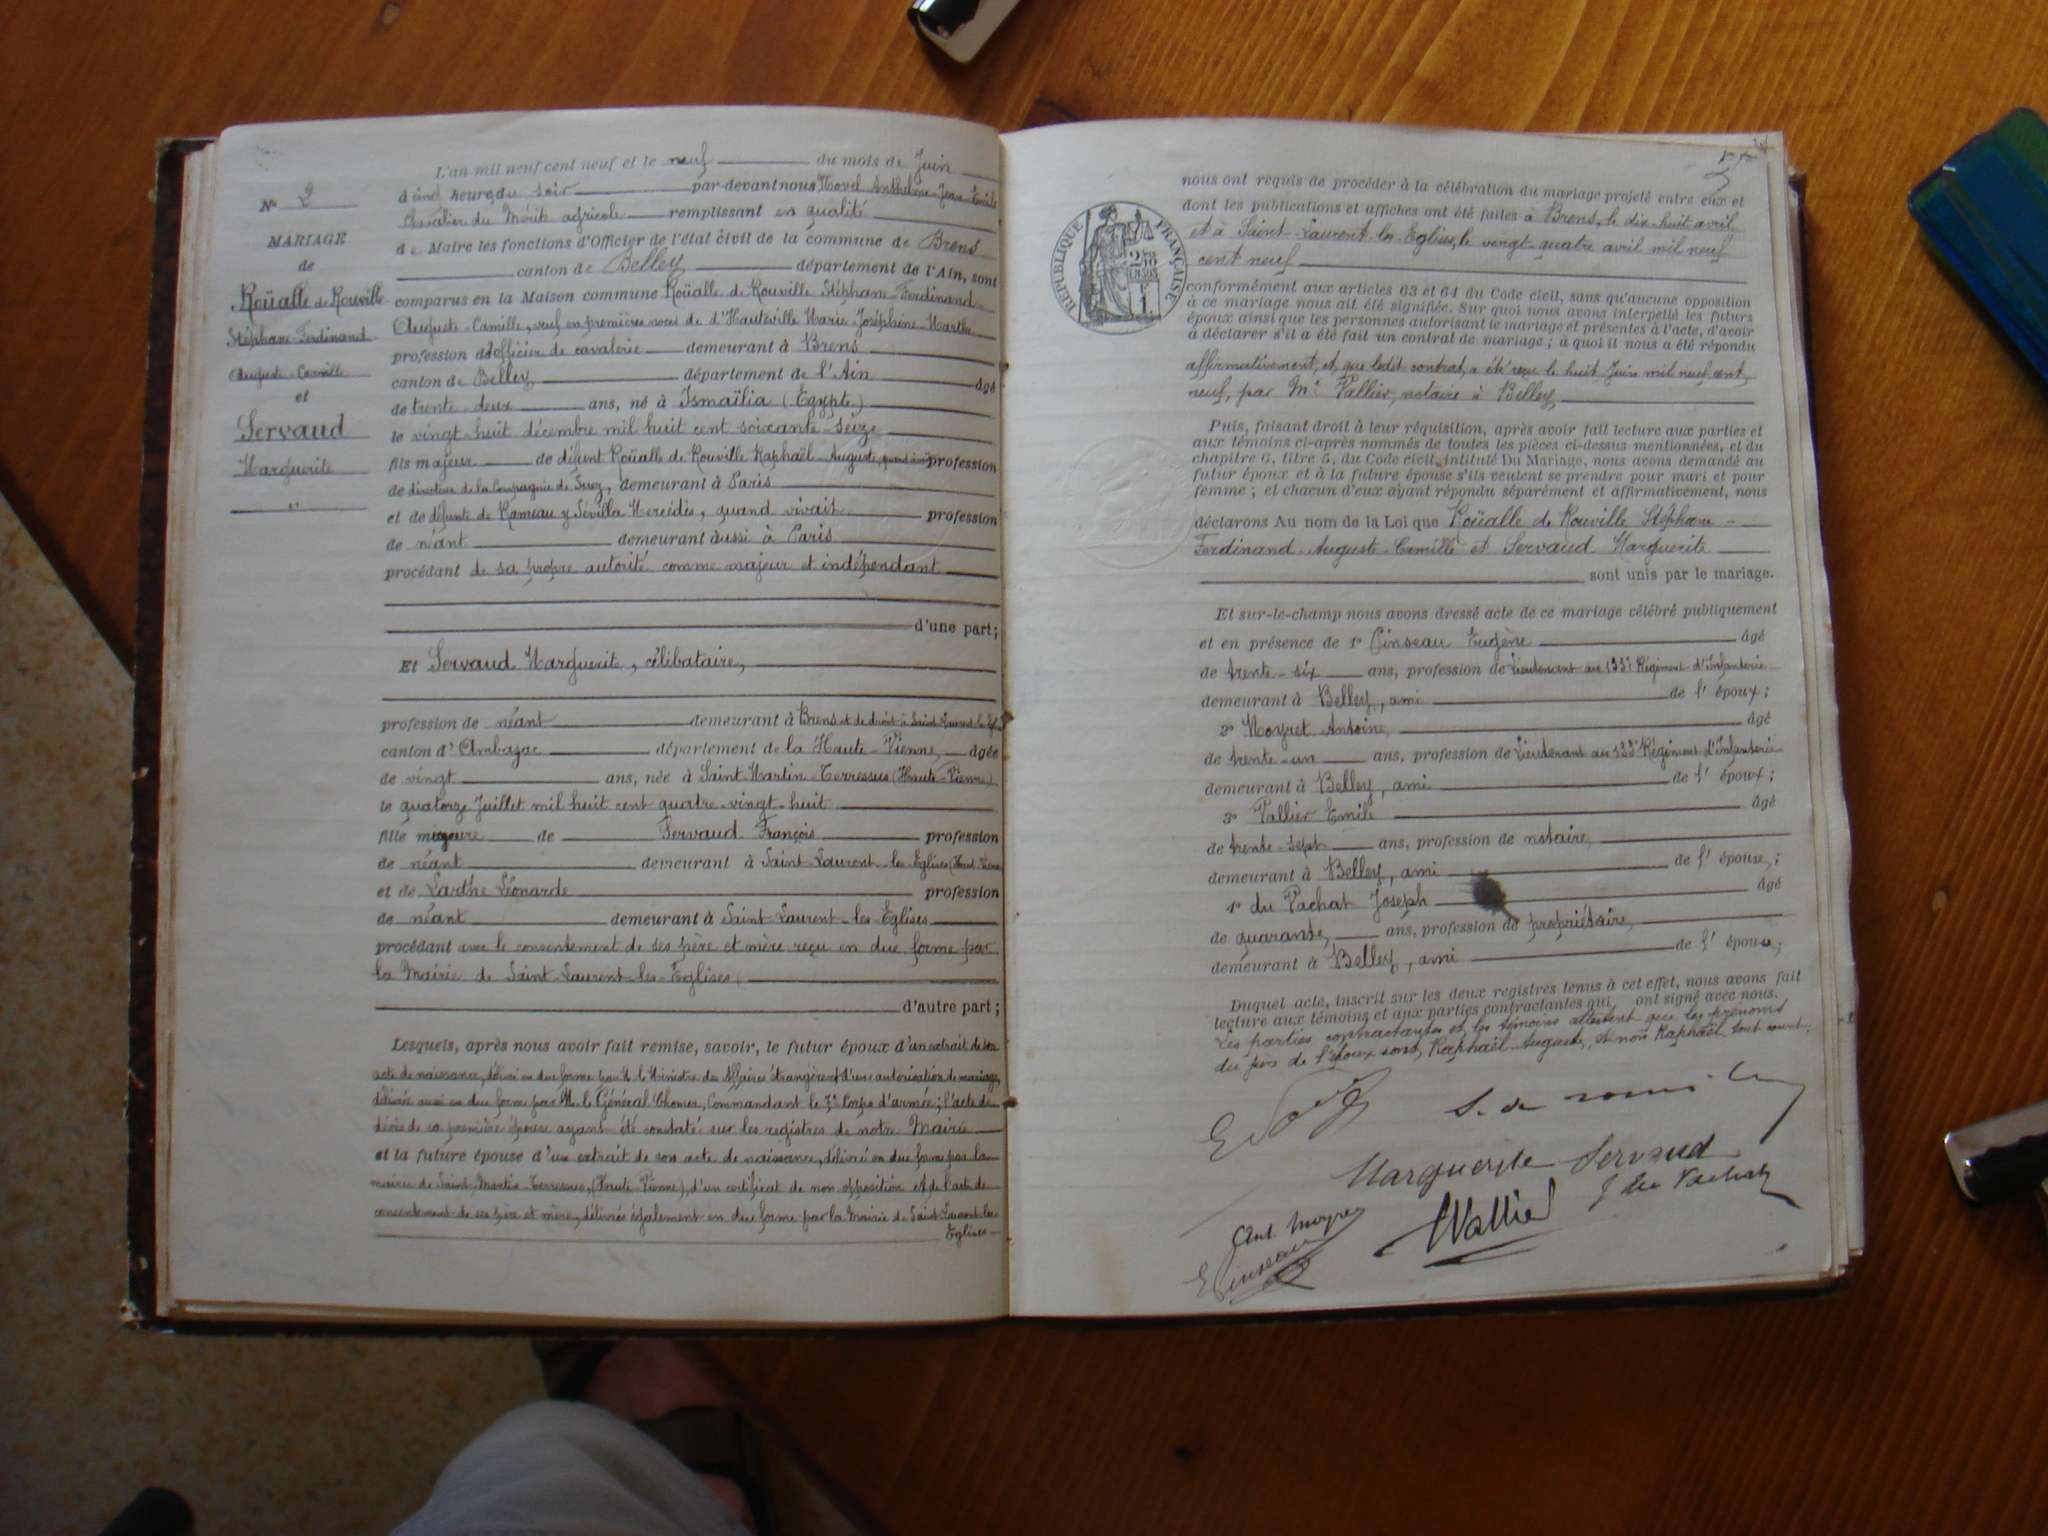 L'an mil neuf cent neuf et le neuf du mois de Juin
à cinq heures du soir par-devant nous Anthelme-Jean-Emile
Chevalier du Mérite agricole remplissant en qualité
de Maire les fonctions d'Officier de l'état civil de la commune de Brens
canton de Belley département de l'Ain, sont
comparus en la Maison commune Roüalle de Rouville Stéphane-Ferdinand-
Auguste-Camille, veuf en premières noces de d'Hauteville Marie-Joséphine-Marthe
profession d'officier de cavalerie demeurant à Brens
canton de Belley département de l'Ain âgé
de trente-deux ans, né à Ismaïlia (Egypte)
le vingt-huit décembre mil huit cent soixante-seize
fils majeur de défunt Roüalle de Rouville Raphaël-Auguste, quand vivait profession
de directeur de la Compagnie de Suez, demeurant à Paris
et de défunte de Rameau y Sévilla Mercédès, quand vivait profession
de néant demeurant aussi à Paris
procédant de sa propre autorité comme majeur et indépendant
d'une part;
Et Servaud Marguerite, célibataire,
profession de néant demeurant à Brens et de droit à Saint-Laurent-les-Egl.
canton d'Ambazac département de la Haute-Vienne, âgée
de vingt ans, née à Saint-Martin-Terressus (Haute-Vienne)
le quatorze Juillet mil huit cent quatre-vingt-huit
fille mineure de Servaud François profession
de néant demeurant à Saint-Laurent-les-Eglises (Haute-Vienne
et de Larthe Léonarde profession
de néant demeurant à Saint-Laurent-les-Eglises
procédant avec le consentement de ses père et mère reçu en due forme par
la Mairie de Saint-Laurent-les-Eglises
d'autre part;
Lesquels, après nous avoir fait remise, savoir, le futur époux d'un extrait de son
acte de naissance, délivré en due forme par M. le Ministre des Affaires étrangères et d'une autorisation de mariage,
délivrée aussi en due forme par M. le Général Chomer, Commandant le 7e Corps d'armée; l'acte de
décès de sa première épouse ayant été constaté sur les registres de notre Mairie
et la future épouse d'un extrait de son acte de naissance, délivré en due forme par la
mairie de Saint-Martin-Terressus, (Haute-Vienne), d'un certificat de non opposition et de l'acte de
consentement de ses père et mère, délivrés également en due forme par la Mairie de Saint-Laurent-les-
Eglises
No 2
MARIAGE
de
Roüalle de Rouville
Stéphane-Ferdinand
Auguste-Camille
et
Servaud
Marguerite
nous ont requis de procéder à la célébration du mariage projeté entre eux et
dont les publications et affiches ont été faites à Brens, le dix-huit avril
et à Saint-Laurent-les-Eglises, le vingt-quatre avril mil neuf
cent neuf
RÉPUBLIQUE FRANÇAISE
conformément aux articles 63 et 64 du Code civil, sans qu'aucune opposition
à ce mariage nous ait été signifiée. Sur quoi nous avons interpellé les futurs
époux ainsi que les personnes autorisant le mariage et présentes à l'acte, d'avoir
à déclarer s'il a été fait un contrat de mariage; à quoi il nous a été répondu
affirmativement, et que ledit contrat, a été reçu le huit Juin mil neuf cent
neuf, par Me Vallier, notaire à Belley
Puis, faisant droit à leur réquisition, après avoir fait lecture aux parties et
aux témoins ci-après nommés de toutes les pièces ci-dessus mentionnées, et du
chapitre 6, titre 5, du Code civil, intitulé Du Mariage, nous avons demandé au
futur époux et à la future épouse s'ils veulent se prendre pour mari et pour
femme; et chacun d'eux ayant répondu séparément et affirmativement, nous
déclarons Au nom de la Loi que Roüalle de Rouville Stéphane-
Ferdinand-Auguste-Camille et Servaud Marguerite
sont unis par le mariage.
Et sur-le-champ nous avons dressé acte de ce mariage célébré publiquement
et en présence de 1º Pinseau Eugène âgé
de trente-six ans, profession de Lieutenant au 133e Régiment d'Infanterie
demeurant à Belley, ami de l'époux;
2º Moyret Antoine, âgé
de trente-un ans, profession de Lieutenant au 133e Régiment d'Infanterie
demeurant à Belley, ami de l'époux;
3º Vallier Emile âgé
de trente-sept ans, profession de notaire,
demeurant à Belley, ami de l'épouse;
4º du Pachat Joseph âgé
de quarante, ans, profession de propriétaire,
demeurant à Belley, ami de l'épouse;
Duquel acte, inscrit sur les deux registres tenus à cet effet, nous avons fait
lecture aux témoins et aux parties contractantes qui ont signé avec nous.
Les parties contractantes et les témoins attestent que les prénoms
du père de l'époux sont, Raphaël-Auguste, et non Raphaël tout court.
S. de rouville
Marguerite Servaud
J du Pachat
Ant. Moyret
EVallier
E Pinseau